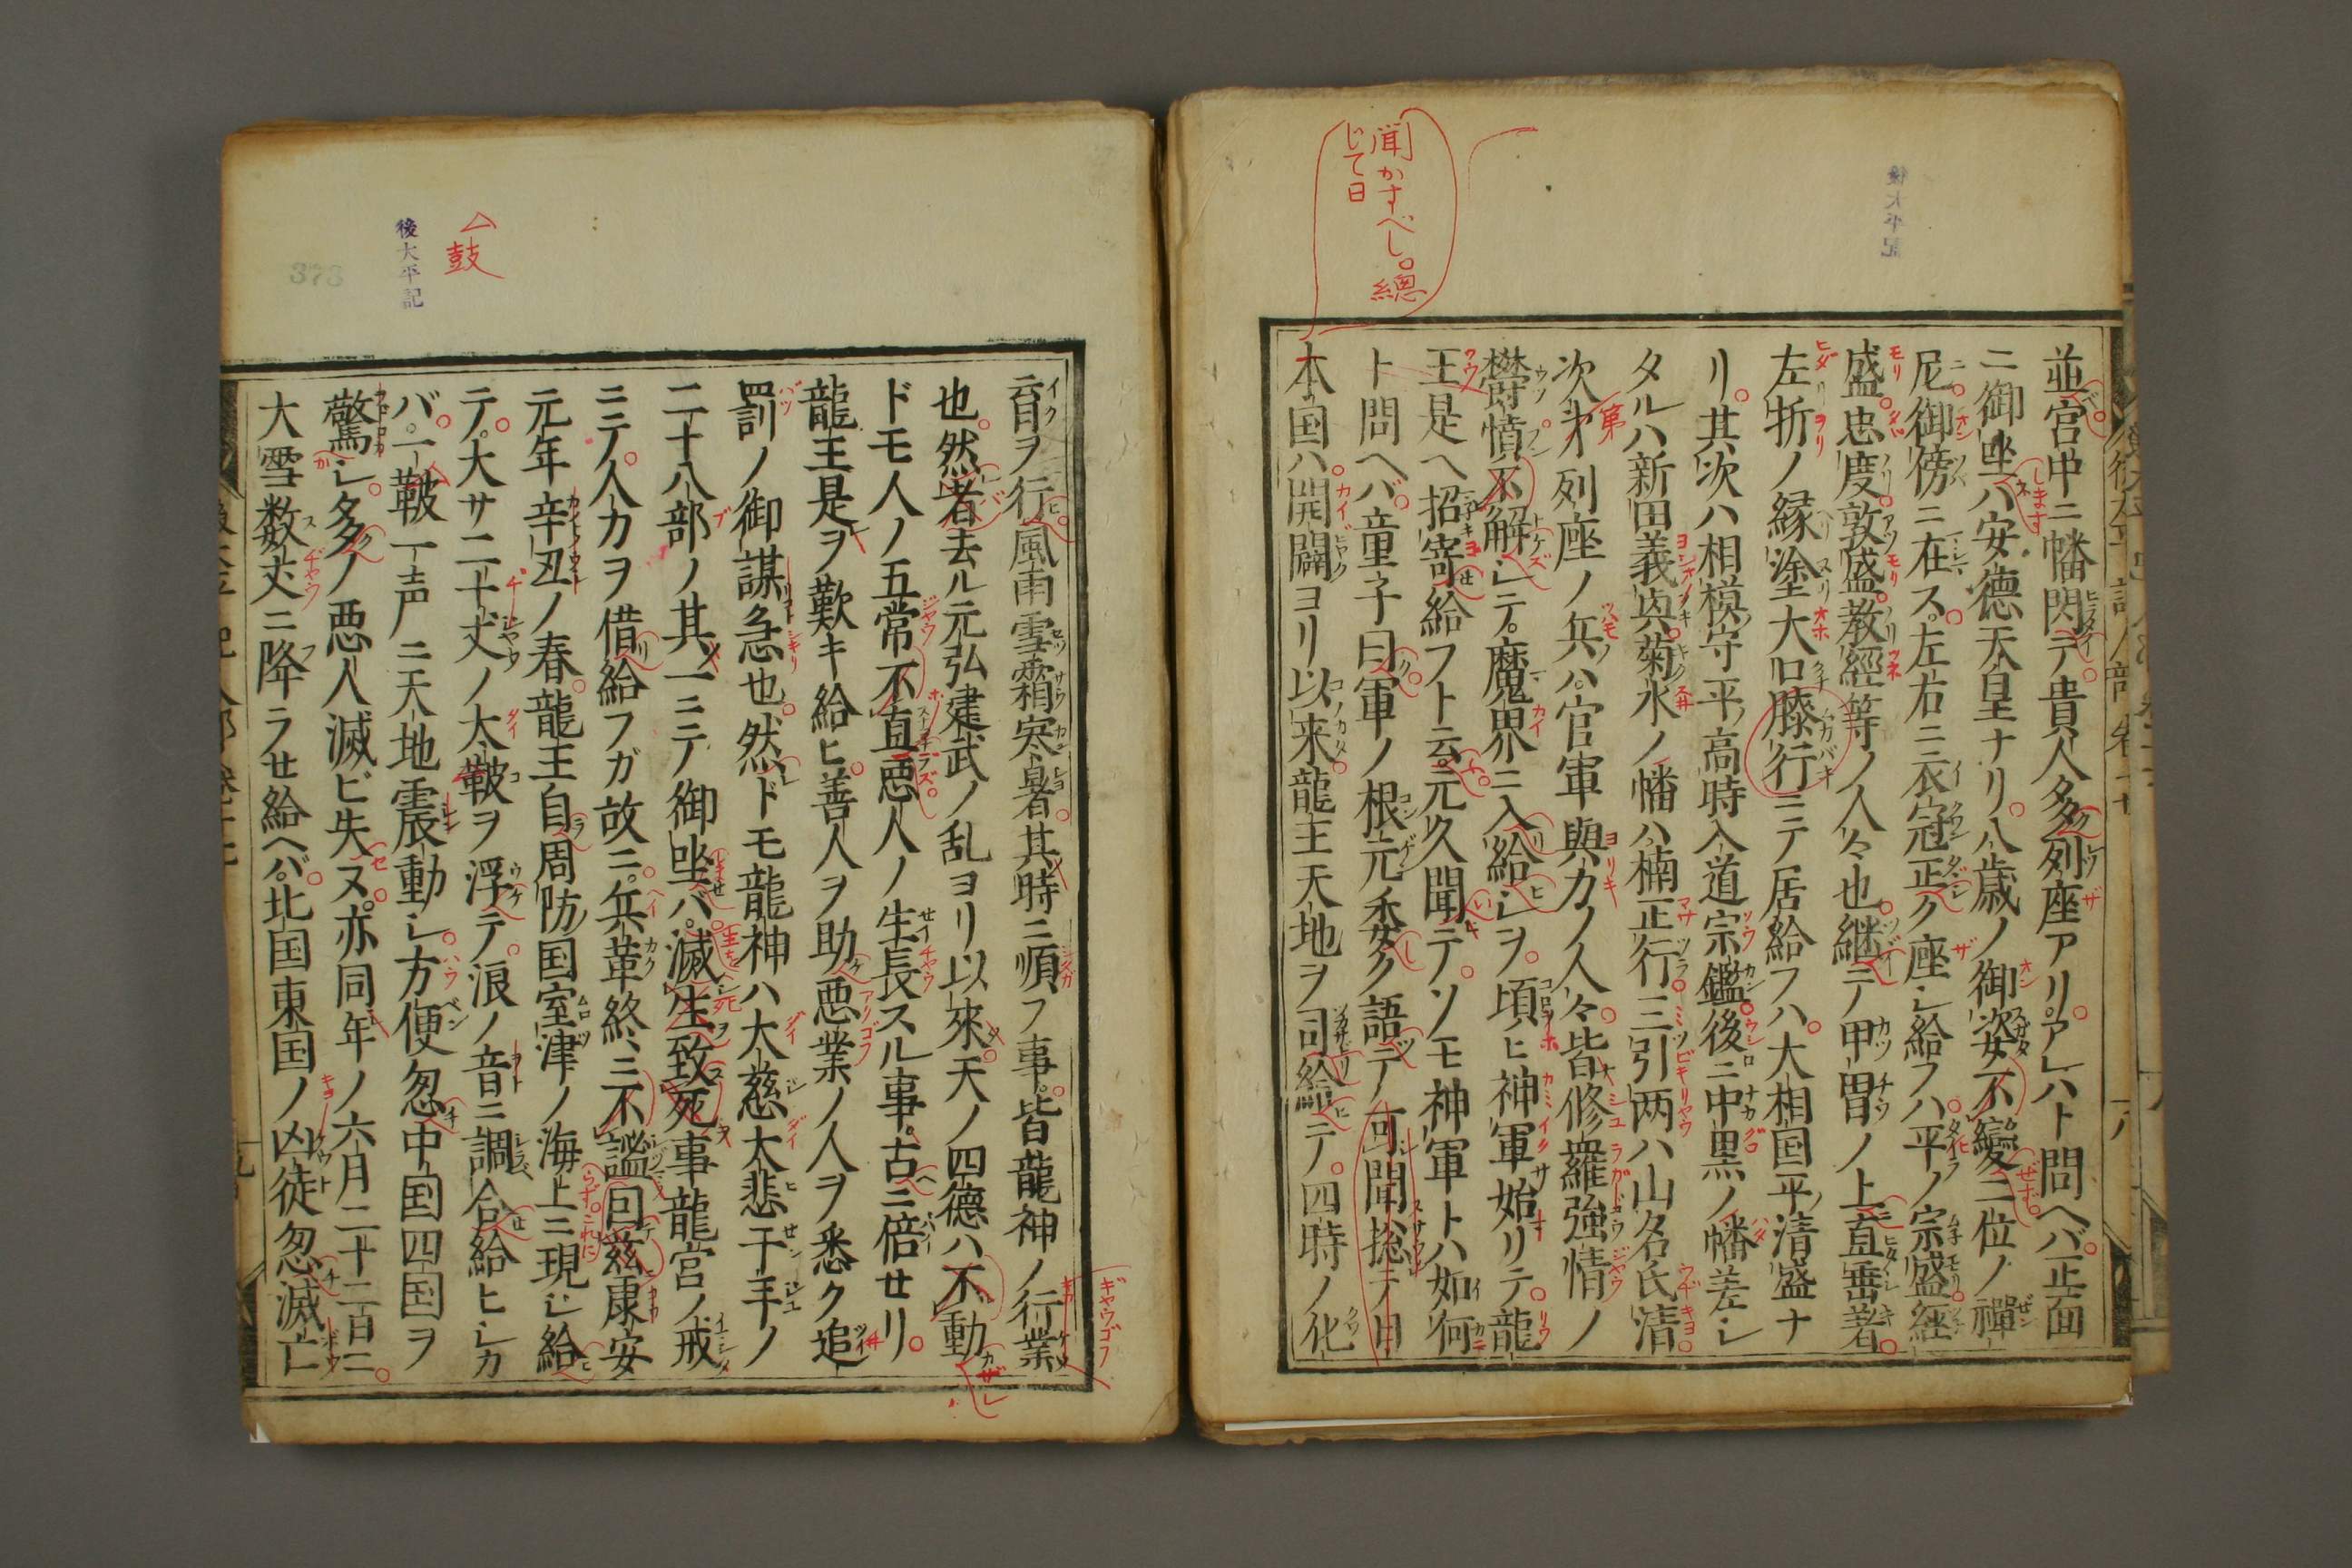 聞かすべし。總
じて日
後太平記
並宮中ニ幡閃テ貴人多列座アリアレハト問ヘバ正面
ニ御坐ハ安德天皇ナリ八歳ノ御姿不變二位ノ禪
尼御傍ニ在ス左右ニ衣冠正ク座シ給フハ平ノ宗盛経
盛忠度敦盛教經等ノ人々也継テ甲冑ノ上直垂著
左折ノ縁塗大口膝行ニテ居給フハ大相国平清盛ナ
リ其次ハ相模守平高時入道宗鑑後ニ中黒ノ幡差シ
タルハ新田義貞菊水ノ幡ハ楠正行三引両ハ山名氏清
次才列座ノ兵ハ官軍與力ノ人々皆修羅強情ノ
欝憤不解シテ魔界ニ入給シヲ頃ヒ神軍始リテ龍
王是ヘ招寄給フト云元久聞テソモ神軍トハ如何
ト問ヘバ童子曰軍ノ根元委ク語テ可聞捴テ日
本国ハ開闢ヨリ以来龍王天地ヲ司給テ四時ノ化
△鼓
後太平記
373
育ヲ行風雨雪霜寒暑其時ニ順フ事皆龍神ノ行業
也然者去ル元弘建武ノ乱ヨリ以來天ノ四德ハ不動
ドモ人ノ五常不直悪人ノ生長スル事古ニ倍セリ
龍王是ヲ歎キ給ヒ善人ヲ助悪業ノ人ヲ悉ク追
罰ノ御謀急也然ドモ龍神ハ大慈大悲千手ノ
二十八部ノ其一ニテ御坐バ滅生致死事龍宮ノ戒
ニテ人力ヲ借給フガ故ニ兵革終ニ不謐回茲康安
元年辛丑ノ春龍王自周防国室津ノ海上ニ現シ給
テ大サ二十丈ノ大鞁ヲ浮テ浪ノ音ニ調合給ヒシカ
バ一鞁一声ニ天地震動シ方便忽中国四国ヲ
驚シ多ノ悪人滅ビ失ヌ亦同年ノ六月二十二日ニ
大雪数丈ニ降ラせ給ヘバ北国東国ノ凶徒忽滅亡